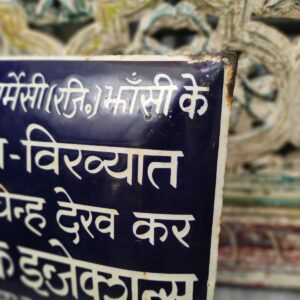 र्मेसी (रजि.) झाँसी के
-विख्यात
चिन्ह देख कर
इन्जेक्शन्स